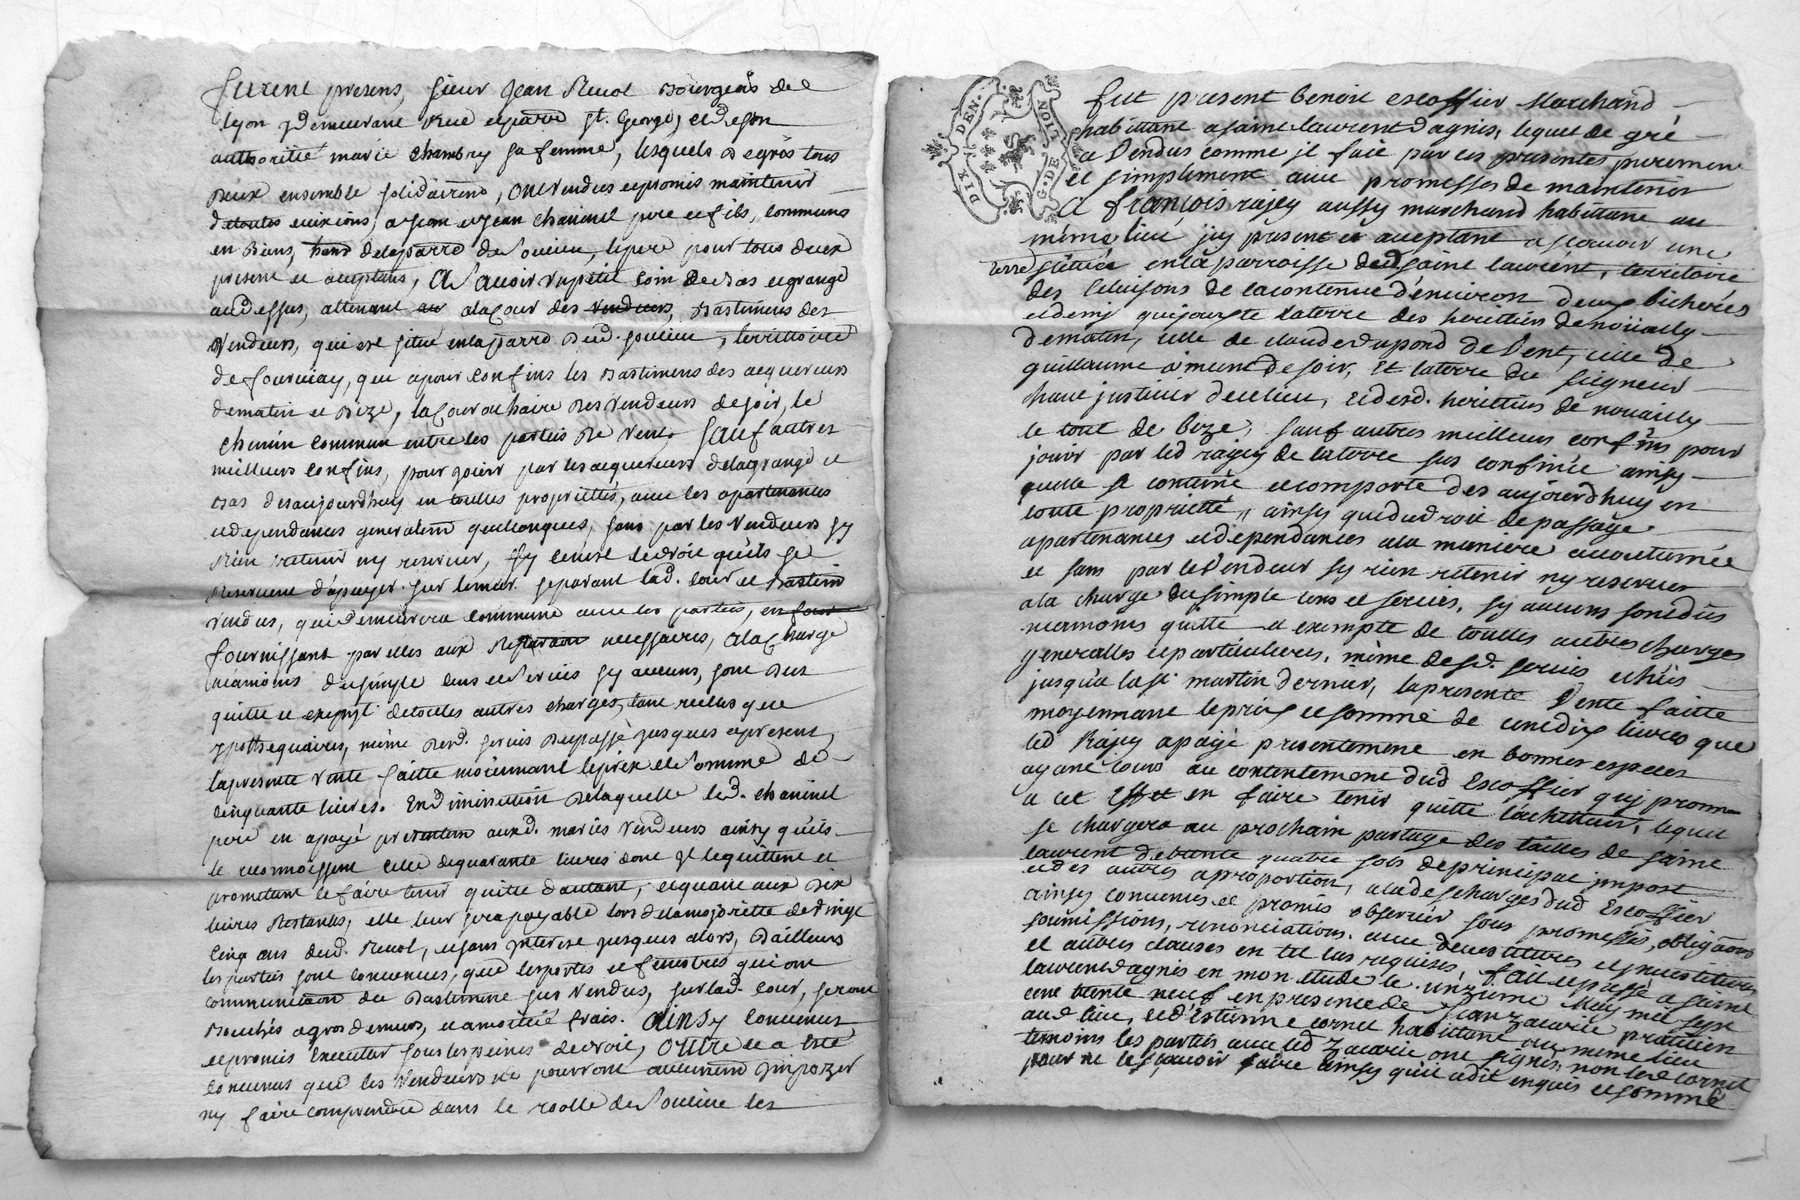 furent presens, sieur Jean Revol Bourgeois de
lyon y demeurant Rue et parre St. George, et de son
authorité marie chambry sa femme, lesquels de grés tous
deux ensemble solidairemt, ont vendus et promis maintenir
de toutes evixions, a Jean et Jean chavinel pere et fils, communs
en Biens, de la parre de Soucieu, le pere pour tous deux
present et acceptans, A Scavoir un petit coin de bas et grange
au dessus, attenant a la Cour des Bastimens des
Vendeurs, qui est situé en la parre dud. soucieu, territtoire
de fourviay, que a pour confins les Bastimens des acquereurs
de matin et Bize, la Cour ou haire des Vendeurs de soir, le
chemin commun entre les parties de Vent, Sauf autres
meilleurs confins, pour jouir par les acquereurs de la grange et
bas des aujourdhuy en touttes proprietés, avec les apartenances
et dependances generalemt quelconques, sans par les Vendeurs sy
Rien retenir ny reserver, sy ce n'est le droit qu'ils se
Reservent d'apuyer sur le mur separant lad. cour et Bastim
vendus, qui demeurera commune avec les parties, en
fournissant par elles aux Reparaon necessaires, a la Charge
neamoins du simple cens et Servis sy aucuns, sont dus
quitte et exempt de toutes autres charges, tant reelles que
ypothequaires, même desd. servis du passé jusques a present,
la presente vente faitte moiennant le prix et Somme de
cinquante livres. En diminution de laquelle led. chavinel
pere en a payé presentem auxd. mariés vendeurs ainsy qu'ils
le reconnoissent celle de quarante livres dont Il le quittent et
promettent le faire tenir quitte d'autant, et quant aux dix
livres Restantes, elle leur sera payable lors de la majorité de Vingt
Cinq ans dud. Revol, et sans Interest jusques alors, D'ailleurs
les parties sont convenues, que les portes et fenestres qui ont
communicaon du Bastiment sus vendus, sur lad. cour, seront
Bouchés a gros de murs, et a moitié frais. Ainsy convenus
et promis executer sous les peines de droit, Outre ce a été
convenus que les Vendeurs ne pourront aucunem Impozer
ny faire comprendre dans le roolle de Soucieu les
DIX DEN. G. DE LION
fut present benoit escoffier Marchand
habittant a saint laurent d'agnis, lequel de gré
a Vendus comme il fait par ces presentes purement
et simplement avec promesses de maintenir
A françois rajey aussy marchand habittant au
même lieu icy present et acceptant a scavoir une
terre sittuée en la parroisse dud saint laurent, territoire
des de la contenue d'environ deux bicherées
et demy qui jouxte la terre des heritiers de nouailly
de matin, celle de claude dupond de Vent, celle de
guillaume de soir, Et la terre du seigneur
haut justicier de ce lieu, et desd. heritiers de nouailly
le tout de bize, sauf autres meilleurs confins pour
jouir par led rajey de la terre sus confinée ainsy
quelle se contient et comporte des aujourdhuy en
toute proprietté, ainsy que du droit de passage
apartenances et dependances a la maniere accoutumée
et sans par le Vendeur sy rien retenir ny reserver
a la charge du simple cens et servis, sy aucuns sont dûs
neamoins quitte et exempte de touttes autres charges
generalles et particulieres, même desd. servis echûs
jusqu'a la St martin dernier, la presente Vente faitte
moyennant le prix et somme de cent dix livres que
led Rajey a payé presentement en bonnes especes
ayant cours au contentement dud Escoffier qui promet
a cet Effet en faire tenir quitte l'achetteur, lequel
se chargera au prochain partage des tailles de saint
laurent de trente quatre sols de principal impost
et des autres a proportion, a la descharges dud Escoffier
ainsy convenus et promis observer sous promesses, obligaons
soumissions, renonciations, avec devestitures et investitures
et autres clauses en tel cas requises, fait et passé a saint
laurent d'agnis en mon etude le unzieme May mil sept
cent trente neuf en presence de Jean zacarie praticien
aud lieu, et d'Estienne cornet habittant au même lieu
temoins les parties avec led zacarie ont signés, non led cornet
pour ne le scavoir faire ainsy qu'il a dit enquis et sommé